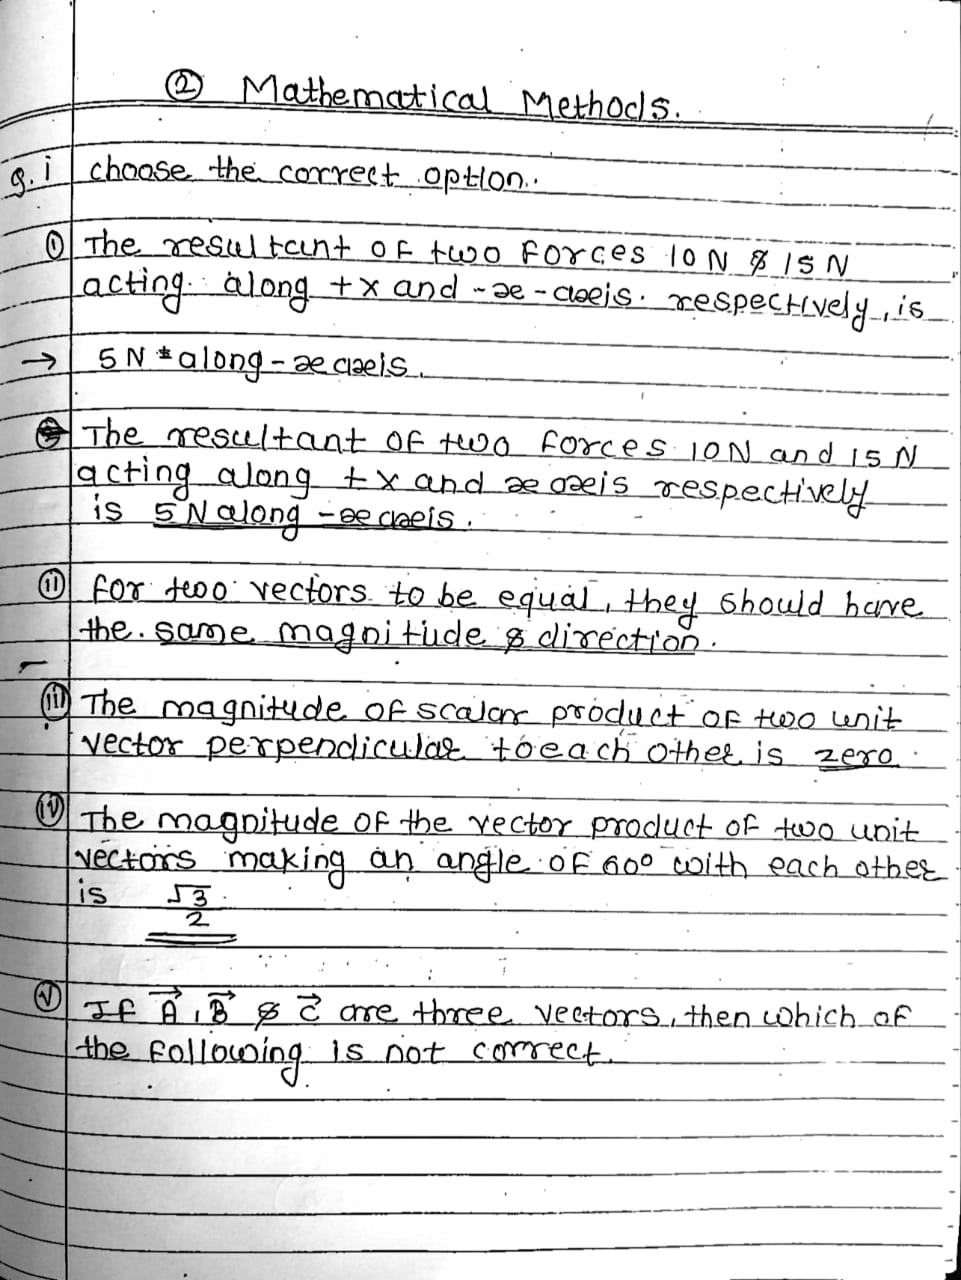 ② Mathematical Methods.
Q.i choose the correct option.
① The resultant of two forces 10 N & 15 N
acting along +x and -x-axis. respectively, is
→ 5 N * along - x axis.
The resultant of two forces 10N and 15 N
acting along +x and x axis respectively
is 5 N along - x axis.
(ii) for two vectors to be equal, they should have
the same magnitude & direction.
(iii) The magnitude of scalar product of two unit
vector perpendicular to each other is zero.
(iv) The magnitude of the vector product of two unit
vectors making an angle of 60° with each other
is √3/2
(v) If A⃗, B⃗ & C⃗ are three vectors, then which of
the following is not correct.